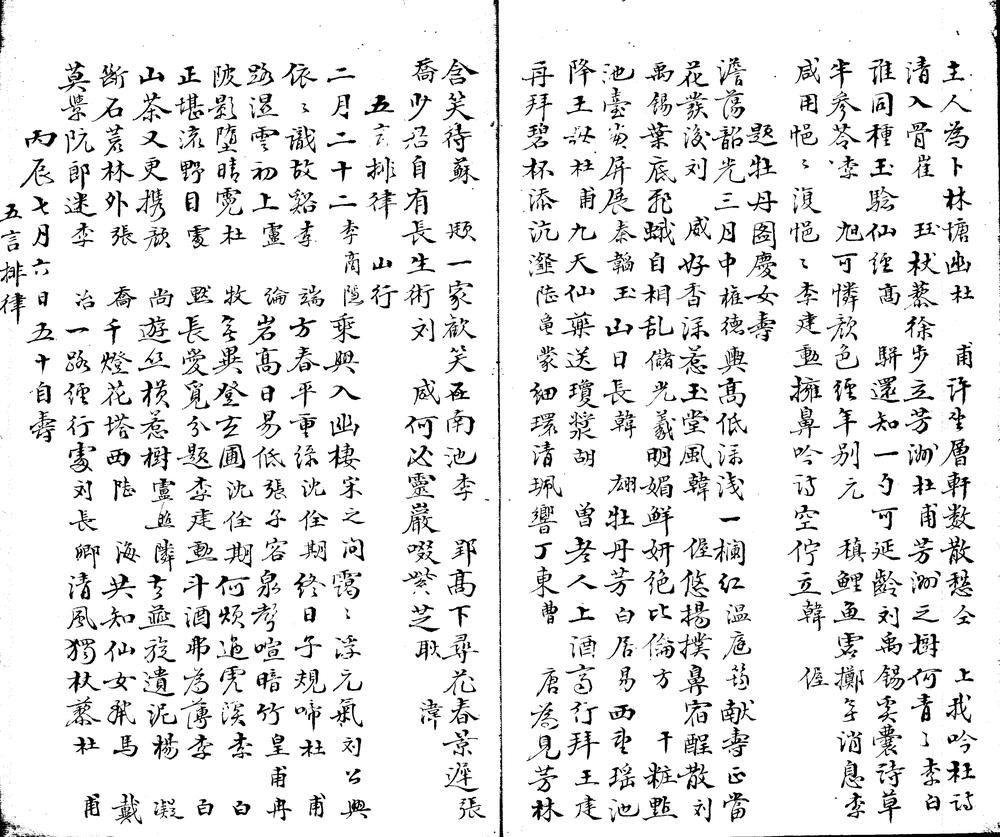 主人為卜林塘幽杜 甫許坐層軒数散愁仝 上我吟杜詩
清入骨崔 珏杖藜徐步立芳洲杜甫芳洲之樹何青〻李白
誰同種玉驗仙經高 駢還知一勺可延齡刘禹錫奚囊詩草
半參苓李 旭可憐顔色經年别元 稹鯉魚書擲多消息李
咸用悒〻復悒〻李建勳擁鼻吟詩空佇立韓 偓
題牡丹図慶女壽
澹蕩韶光三月中權德輿高低深浅一欄紅温庭筠献壽正當
花發後刘 咸好香深惹玉堂風韓 偓悠揚撲鼻宿酲散刘
禹錫葉底飛蛾自相乱儲光羲明媚鮮妍絶比倫方 干粧點
池臺畵屏展秦韜玉山日長韓 翃牡丹芳白居易西望瑶池
降王母杜甫九天仙藥送瓊漿胡 曽老人上酒高行拜王建
再拜碧杯添沆瀣陸龜蒙細環清珮響丁東曹 唐為見芳林
含笑待蘇 頲一家歓笑在南池李 郢高下尋花春景遲張
喬少君自有長生術刘 咸何必靈巖啜紫芝耿 湋
五言排律 山行
二月二十二李商隠乘興入幽棲宋之问靄〻浮元氣刘公興
依〻識故谿李 端方春平重綠沈佺期終日子規啼杜 甫
路濕雲初上盧 綸岩高日易低張子容泉声喧暗竹皇甫冉
陂影墮晴霓杜 牧多異登玄圃沈佺期何煩過虎溪李 白
正堪流野目處 黙長愛覓分題李建勳斗酒弗為薄李 白
山茶又更携顔 尚遊丝横惹樹盧照隣去燕旋遺泥楊 凝
断石蒼林外張 喬千燈花塔西陸 海共知仙女秣馬 戴
莫學阮郎迷李 冶一路經行處刘長卿清風獨杖藜杜 甫
丙辰七月六日五十自壽
五言排律